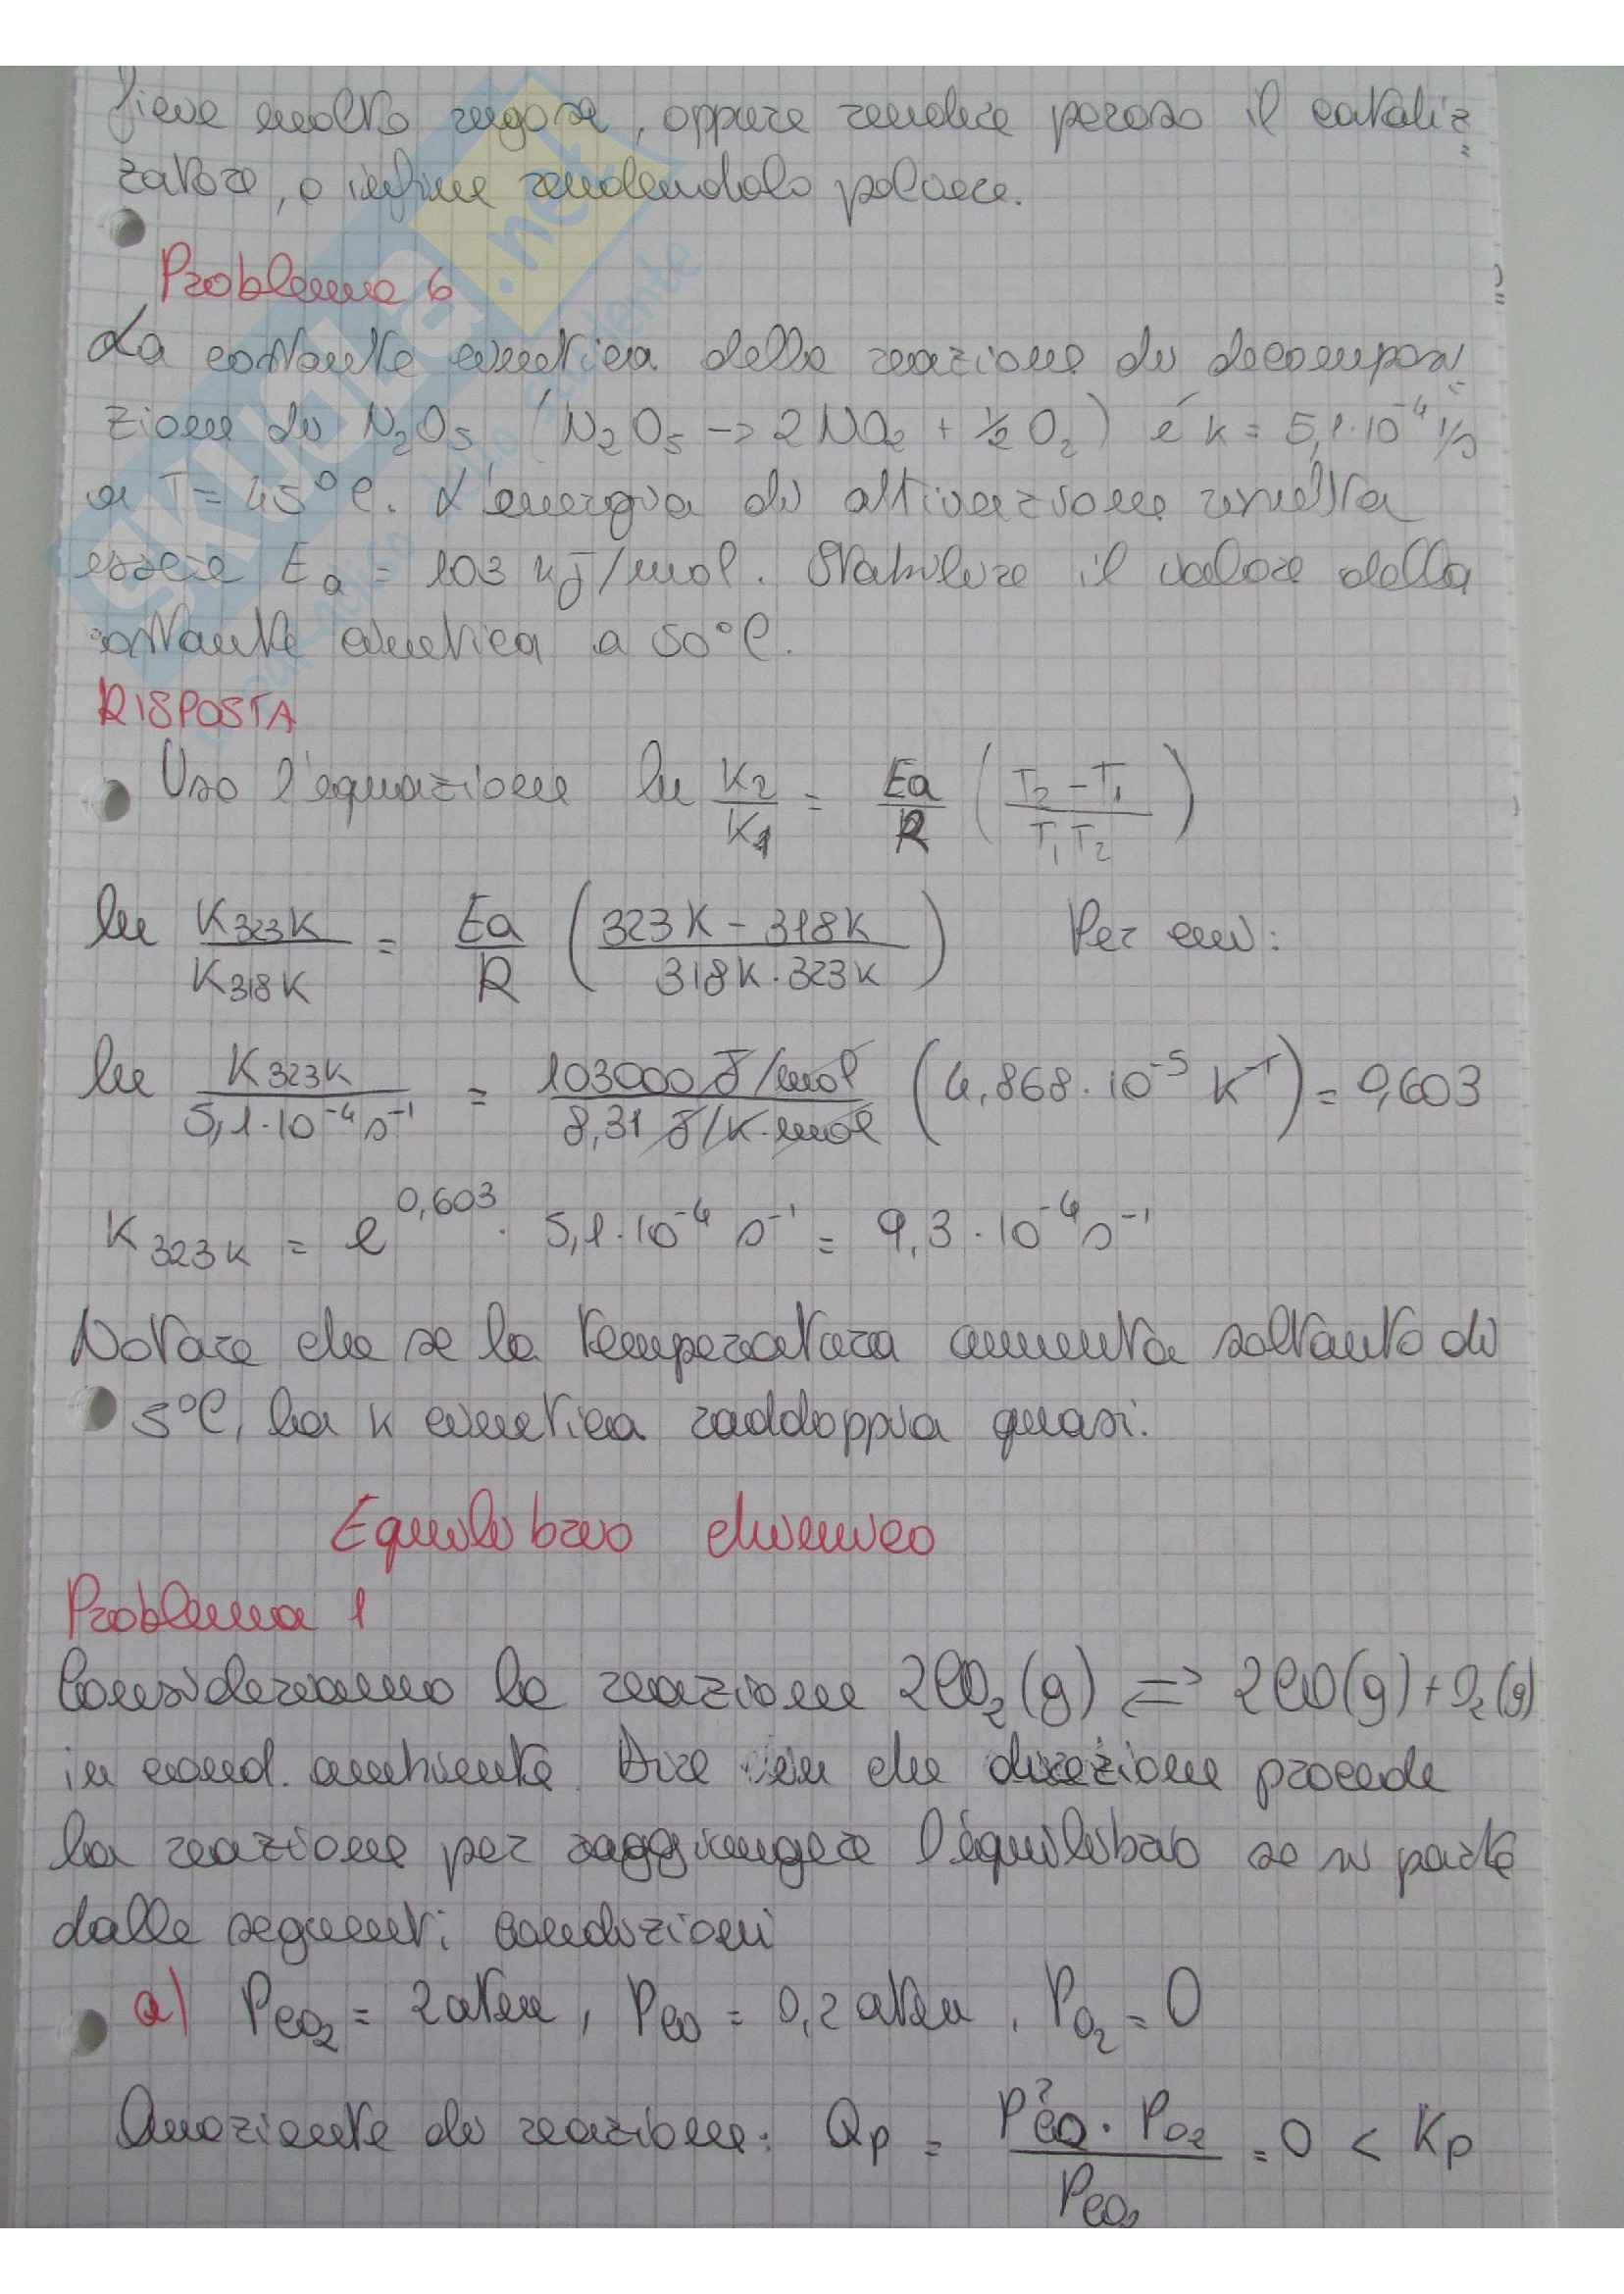 ficie molto rugosa, oppure rendere poroso il cataliz=
zatore, o infine rendendolo polvere.
Problema 6
La costante cinetica della reazione di decomposi=
zione di N₂O₅ (N₂O₅ -> 2NO₂ + ½ O₂) é k = 5,1·10⁻⁴ 1/s
a T = 45°C. L'energia di attivazione risulta
essere Ea = 103 kJ/mol. Stabilire il valore della
costante cinetica a 50°C.
RISPOSTA
Uso l'equazione ln K₂/K₁ = Ea/R (T₂ - T₁ / T₁T₂)
ln K323K/K318K = Ea/R (323K - 318K / 318K · 323K) Per cui:
ln K323K / 5,1·10⁻⁴ s⁻¹ = 103000 J/mol / 8,31 J/K·mol (4,868·10⁻⁵ K⁻¹) = 0,603
K323K = e^0,603 · 5,1·10⁻⁴ s⁻¹ = 9,3·10⁻⁴ s⁻¹
Notare che se la temperatura aumenta soltanto di
5°C, la k cinetica raddoppia quasi.
Equilibrio chimico
Problema 1
Consideriamo la reazione 2CO₂(g) ⇌ 2CO(g) + O₂(g)
in cond. ambiente. Dire in che direzione procede
la reazione per raggiungere l'equilibrio se si parte
dalle seguenti condizioni
a) PCO₂ = 2 atm, PCO = 0,2 atm, PO₂ = 0
Quoziente di reazione: Qp = P²CO · PO₂ / PCO₂ = 0 < Kp
SKUOLA.net